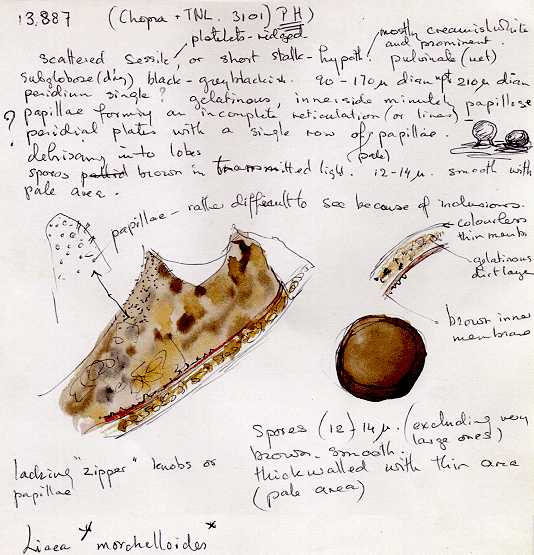 13,887 (Chopra + TNL. 3101) PH)
platelets-ridged
scattered sessile, or short stalk-hypoth. mostly creamish white and prominent.
pulvinate (wet)
subglobose (dry) black - greyblackish. 90 - 170µ diam upt 210µ diam
peridium single? gelatinous, innerside minutely papillose
? papillae forming an incomplete reticulation (or lines) -
peridial plates with a single row of papillae.
dehiscing into lobes (pale)
spores brown in transmitted light. 12-14µ. smooth with
pale area.
papillae - rather difficult to see because of inclusions.
colourless
thin memb
gelatinous
dirt layer
brown inner
membrane
Spores (12) 14µ. (excluding very
large ones)
brown. smooth.
thickwalled with thin area
(pale area)
lacking "zipper" knobs or
papillae
Licea * morchelloides *